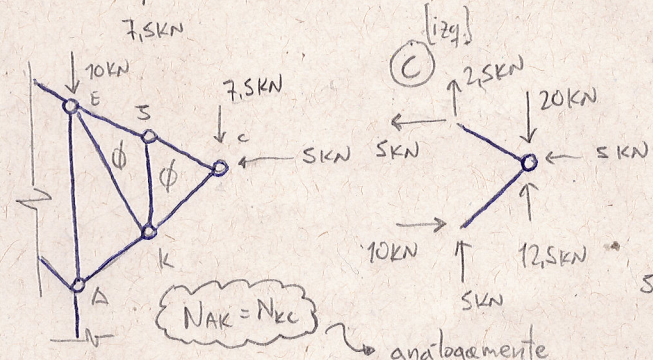 7,5KN
10KN
E
5
7,5KN
C
5KN
φ
φ
K
A
N
NAK = NKC
[izq.]
C
2,5KN
20KN
5KN
5KN
10KN
12,5KN
5KN
5
análogamente